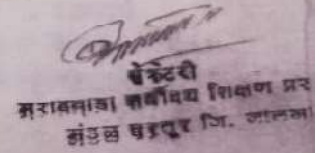 सेक्रेटरी
मराठवाडा सर्वोदय शिक्षण प्रसा
मंडळ परतूर जि. जालना